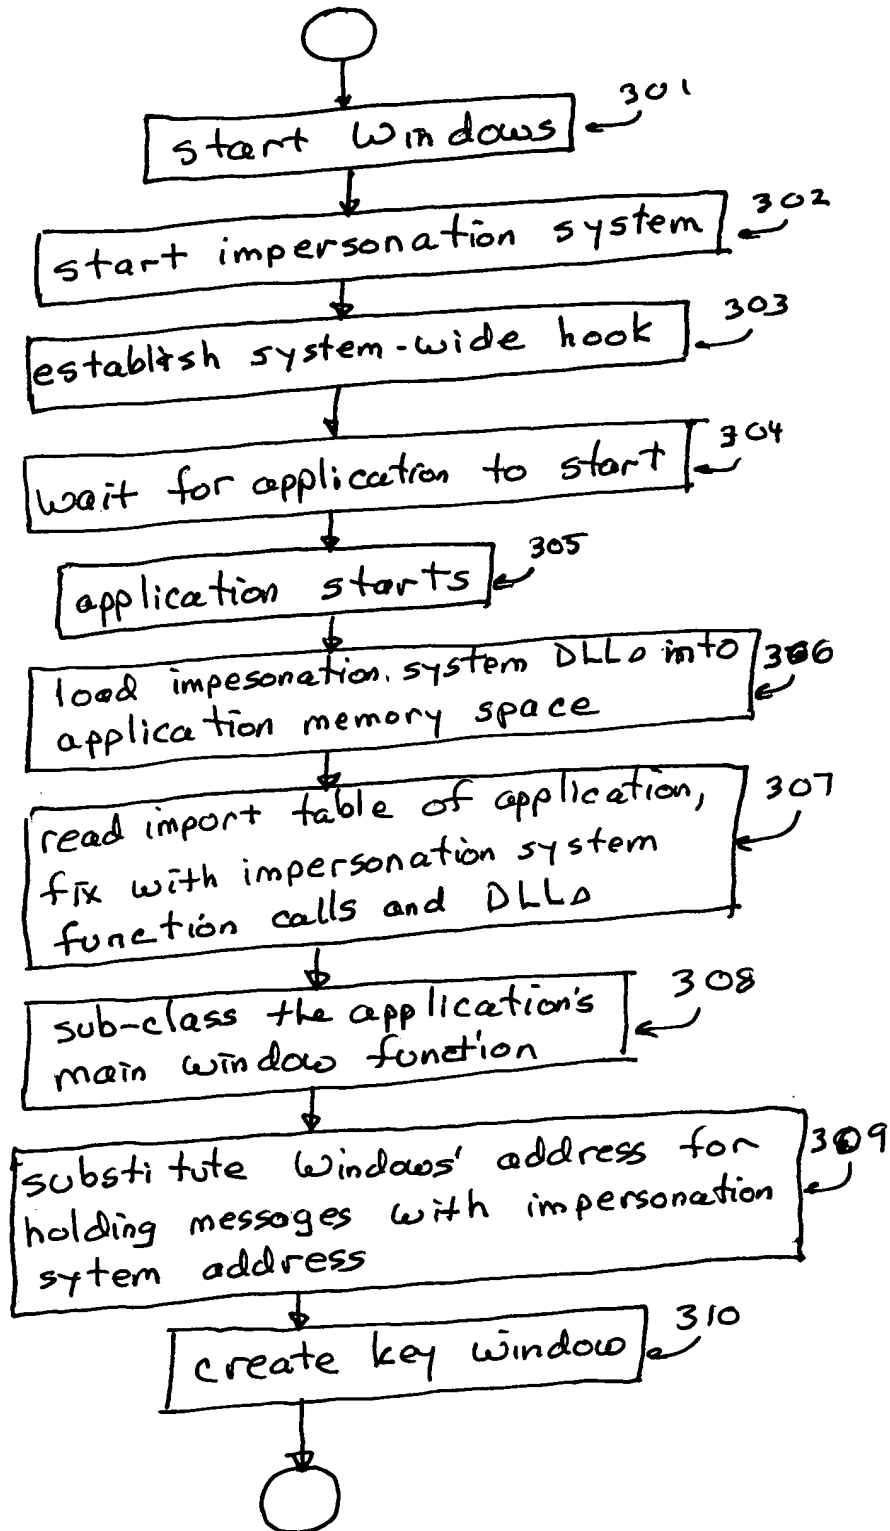 301
start Windows
302
start impersonation system
303
establish system-wide hook
304
wait for application to start
305
application starts
306
load impesonation. system DLLs into
application memory space
307
read import table of application,
fix with impersonation system
function calls and DLLs
308
sub-class the application's
main window function
309
substitute Windows' address for
holding messages with impersonation
sytem address
310
create key window